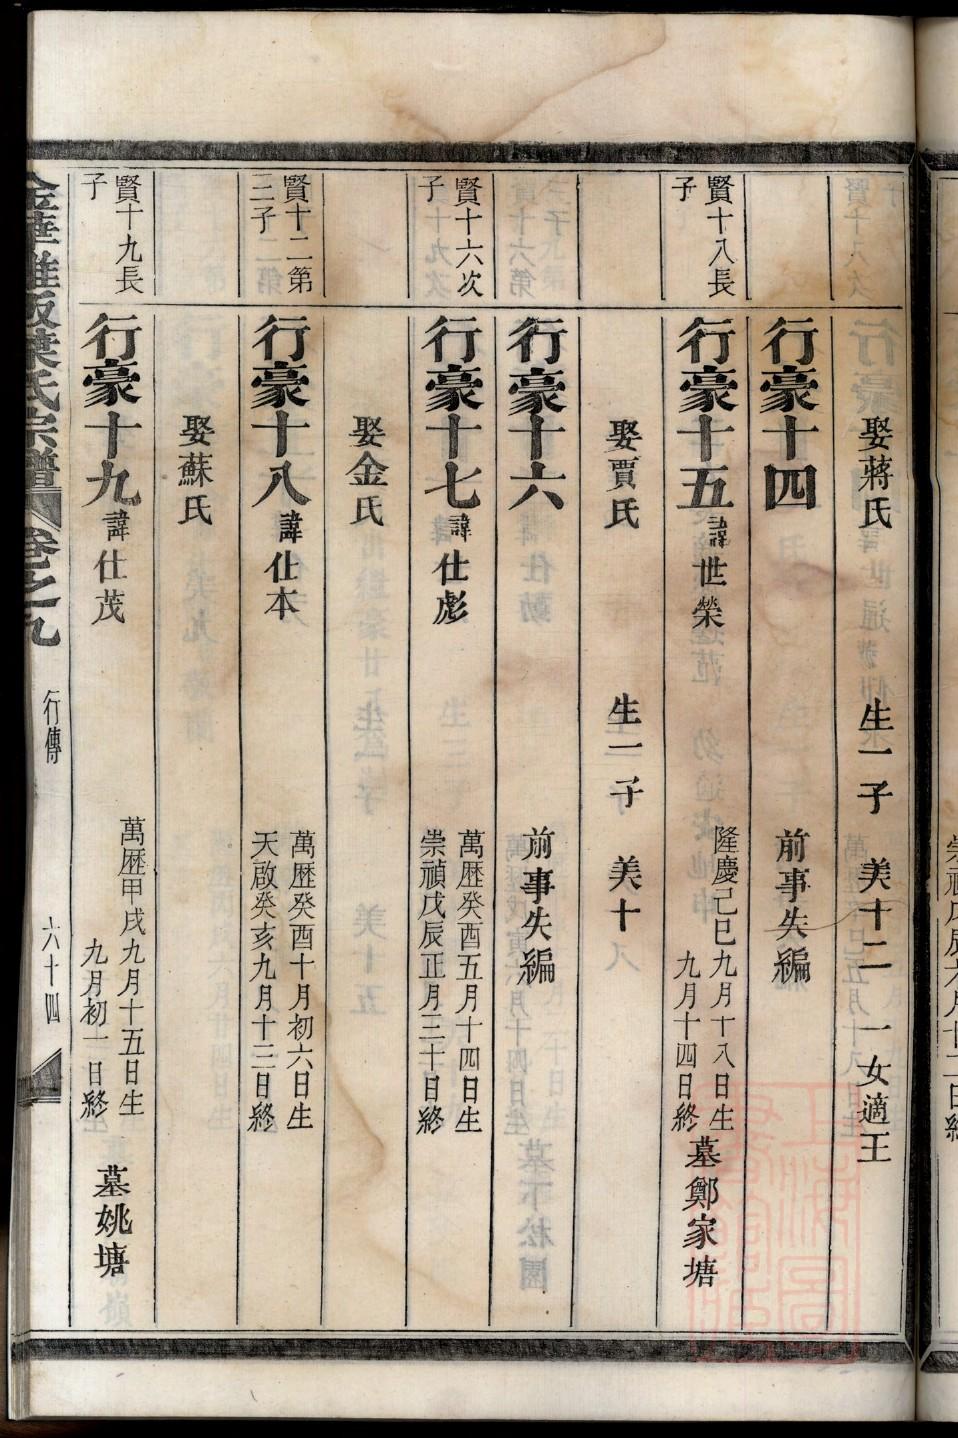 娶蔣氏 生一子 美十二 一女適王
行豪十四 前事失編
賢十八長子
行豪十五 諱世榮 隆慶己巳九月十八日生 九月十四日終 墓鄭家塘
娶賈氏 生一子 美十
行豪十六 前事失編
賢十六次子
行豪十七 諱仕彪 萬歷癸酉五月十四日生 崇禎戊辰正月三十日終
娶金氏
賢十二第三子
行豪十八 諱仕本 萬歷癸酉十月初六日生 天啟癸亥九月十二日終
娶蘇氏
賢十九長子
行豪十九 諱仕茂 萬歷甲戌九月十五日生 九月初一日終 墓姚塘
葉氏宗譜 卷之九 行傳 六十四